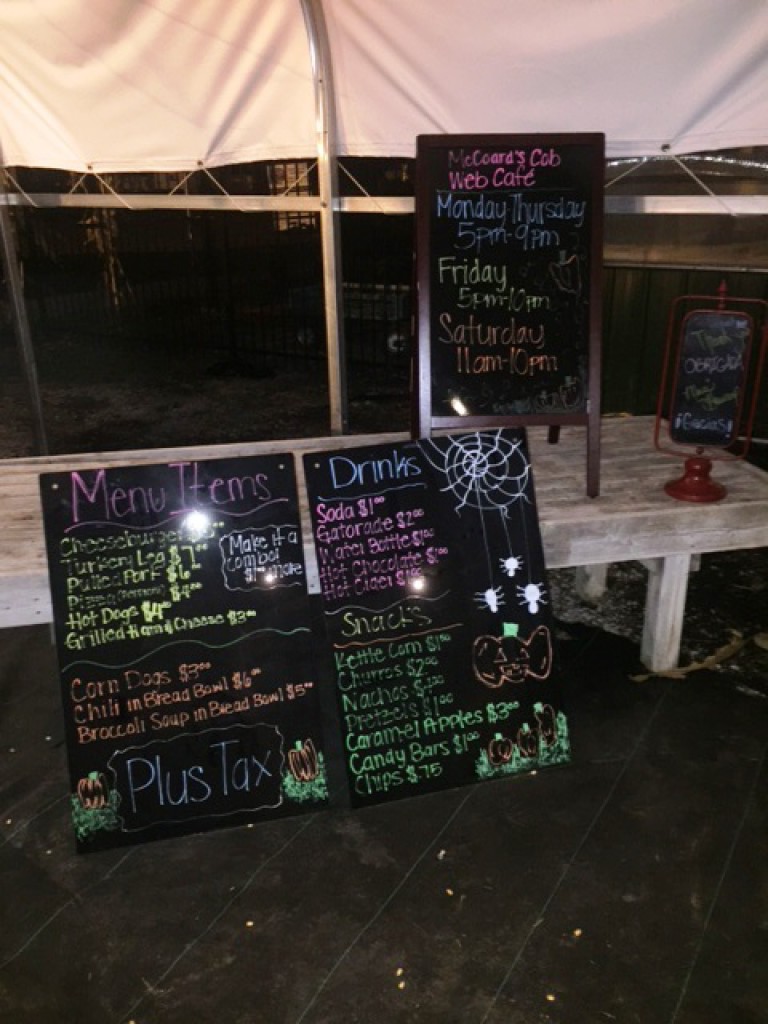 McCoard's Cob
Web Café
Monday-Thursday
5pm-9pm
Friday
5pm-10pm
Saturday
11am-10pm
Thank
OBRIGADA
¡Gracias!
Menu Items
Cheeseburger
Turkey Leg $7.00
Pulled Pork $6
Pizza
Hot Dogs $4.00
Grilled Ham & Cheese $3.00
Make it a
combo!
more
Corn Dogs $3.00
Chili in Bread Bowl $6.00
Broccoli Soup in Bread Bowl $5.00
Plus Tax
Drinks
Soda $1.00
Gatorade $2.00
Water Bottle $1.00
Hot Chocolate $1.00
Hot Cider $1
Snacks
Kettle Corn $1.00
Churros $2.00
Nachos
Pretzels $1.00
Caramel Apples $3.00
Candy Bars $1.00
Chips $.75